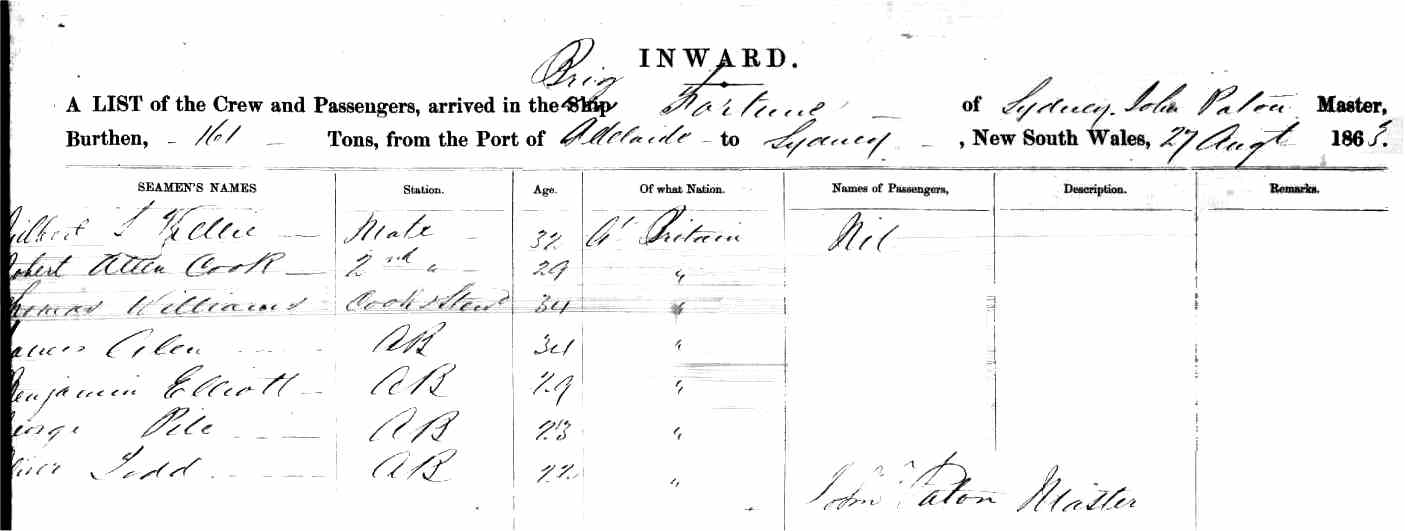 INWARD.
Brig
A LIST of the Crew and Passengers, arrived in the Ship Fortune of Sydney. John Paton Master,
Burthen, - 161 - Tons, from the Port of Adelaide - to Sydney - , New South Wales, 27 Augt 1863.
SEAMEN'S NAMES Station. Age. Of what Nation. Names of Passengers, Description. Remarks.
ilbert Mate 32 Gt Britain Nil
obert Allen Cook 2nd " 29 "
homas Williams Cook & Stewd 34 "
Allen AB 34 "
Benjamin Elliott AB 29 "
eorge Pile AB 23 "
liver Todd AB 22 "
John Paton Master